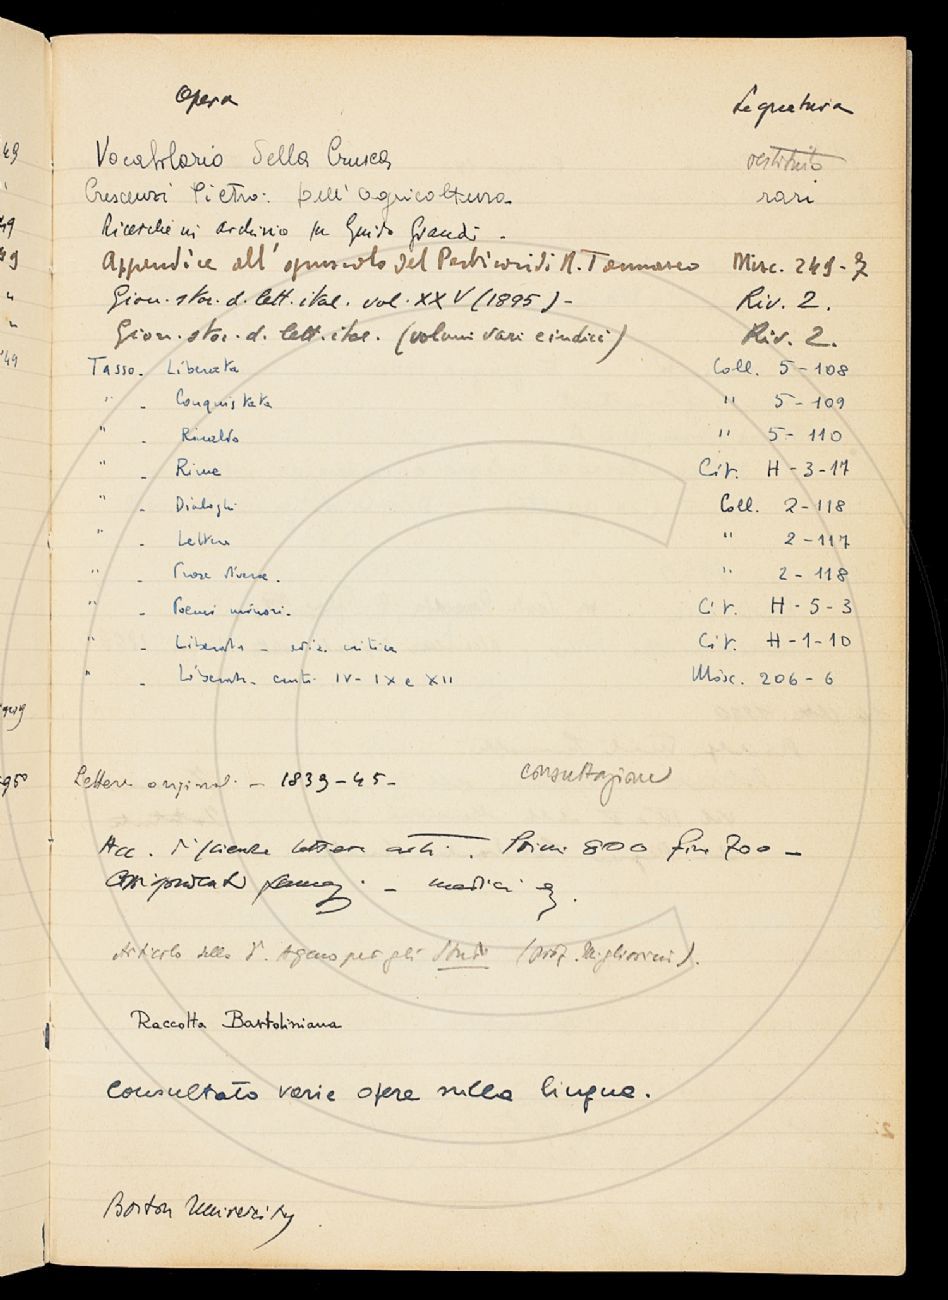 Opera Segnatura
49
Vocabolario della Crusca restituito
Crescenzi Pietro: Dell'agricoltura rari
49
Ricerche in archivio su Guido Grandi -
49
Appendice all'opuscolo del Perticari di N. Tommaseo Misc. 249-7
" Gior. stor. d. lett. ital. vol. XXV (1895) - Riv. 2.
" Gior. stor. d. lett. ital. (volumi vari e indici) Riv. 2.
'49
Tasso - Liberata Coll. 5-108
" - Conquistata " 5-109
" - Rinaldo " 5-110
" - Rime Cit. H-3-17
" - Dialoghi Coll. 2-118
" - Lettere " 2-117
" - Prose diverse. " 2-118
" - Poemi minori. Cit. H-5-3
" - Liberata - ediz. critica Cit. H-1-10
" - Liberata - canti IV-IX e XII Misc. 206-6
Lettere originali - 1839-45- consultazione
Acc. di scienze lettere arti. Primi 800 fine 700 -
medici
Articolo della d. Ageno per gli Studi (prof. Migliorini).
Raccolta Bartoliniana
Consultato varie opere sulla lingua.
Boston University